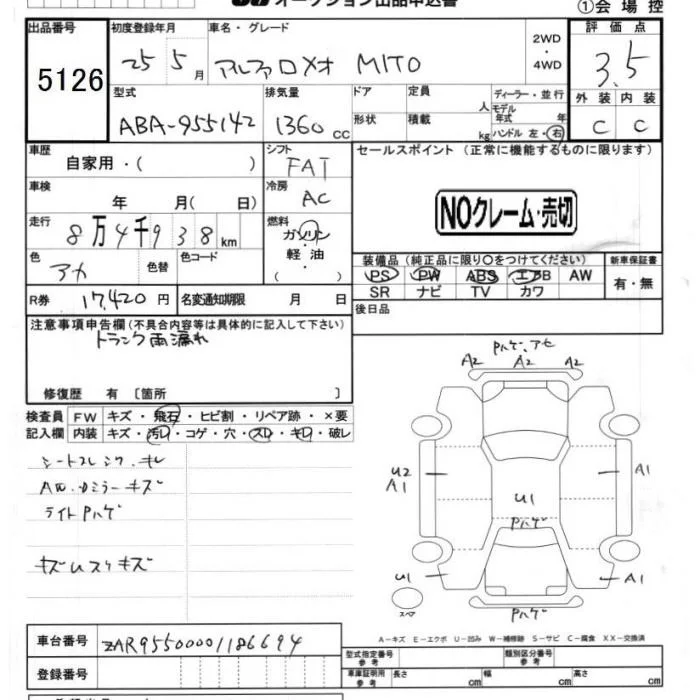 オークション出品申込書 ①会場控
出品番号 初度登録年月 車名・グレード 2WD・4WD 評価点
5126 25 5月 アルファロメオ MITO 3.5
型式 排気量 ドア 定員 ディーラー・並行 外装 内装
ABA-955142 1360cc 形状 積載 人 kg モデル年式 年 ハンドル 左・右 C C
車歴 自家用・( ) シフト FAT セールスポイント (正常に機能するものに限ります)
車検 年 月( 日) 冷房 AC NOクレーム・売切
走行 8万4千938km 燃料 ガソリン・軽油・( )
色 アカ 色替 色コード 装備品 (純正品に限り○をつけてください) 新車保証書
PS PW ABS エアB AW 有・無
R券 17,420円 名変通知期限 月 日 SR ナビ TV カワ
注意事項申告欄(不具合内容等は具体的に記入して下さい) 後日品
トランク雨漏れ
修復歴 有 [箇所 ]
検査員 FW キズ・飛石・ヒビ割・リペア跡・×要
記入欄 内装 キズ・汚レ・コゲ・穴・スレ・キレ・破レ
Pハゲ、アセ
A2 A2 A2
シートスレ シワ・キレ
AW・ドミラーキズ
ライトPハゲ
キズUスリキズ
U2 A1 U1 A1
Pハゲ
U1 A1
スペア Pハゲ
A-キズ E-エクボ U-凹み W-補修跡 S-サビ C-腐食 XX-交換済
車台番号 ZAR95500001186694 型式指定番号 参考 類別区分番号 参考
登録番号 車庫証明用 参考 長さ cm 幅 cm 高さ cm